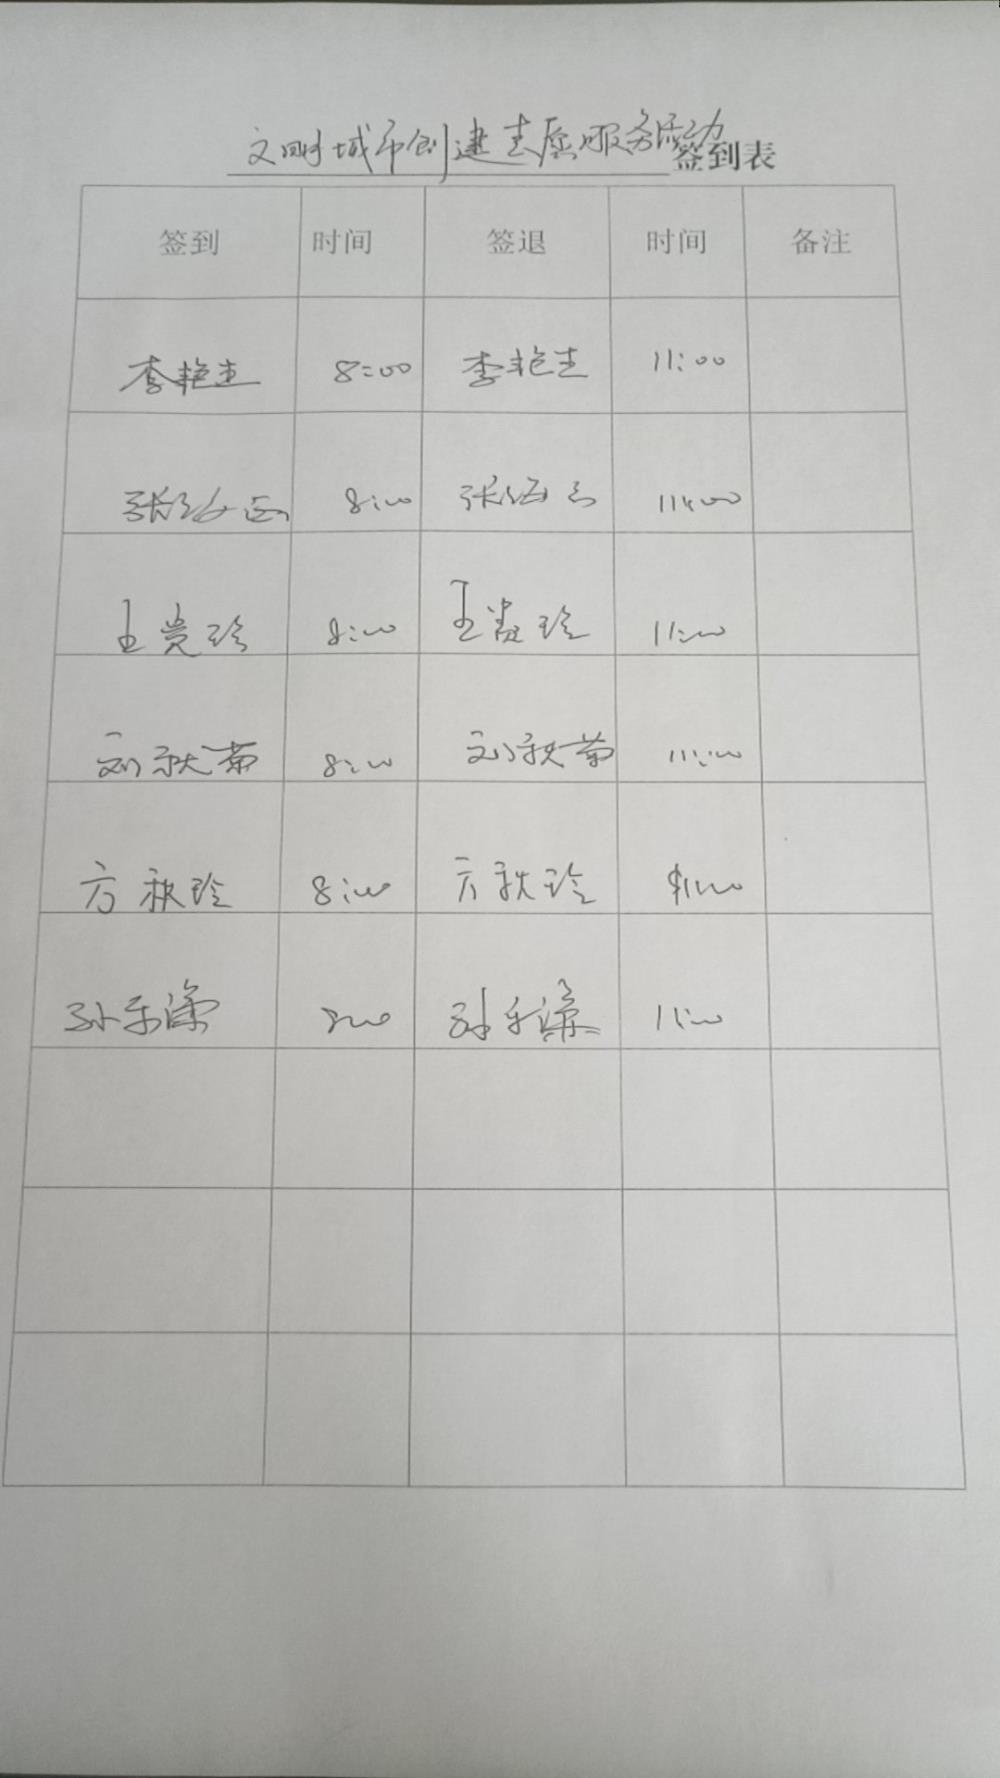 文明城市创建志愿服务活动签到表
签到 时间 签退 时间 备注
李艳 8:00 李艳 11:00
张 8:00 张 11:00
王贵珍 8:00 王贵珍 11:00
刘秋菊 8:00 刘秋菊 11:00
方秋珍 8:00 方秋珍 11:00
孙乐 孙乐 11:00